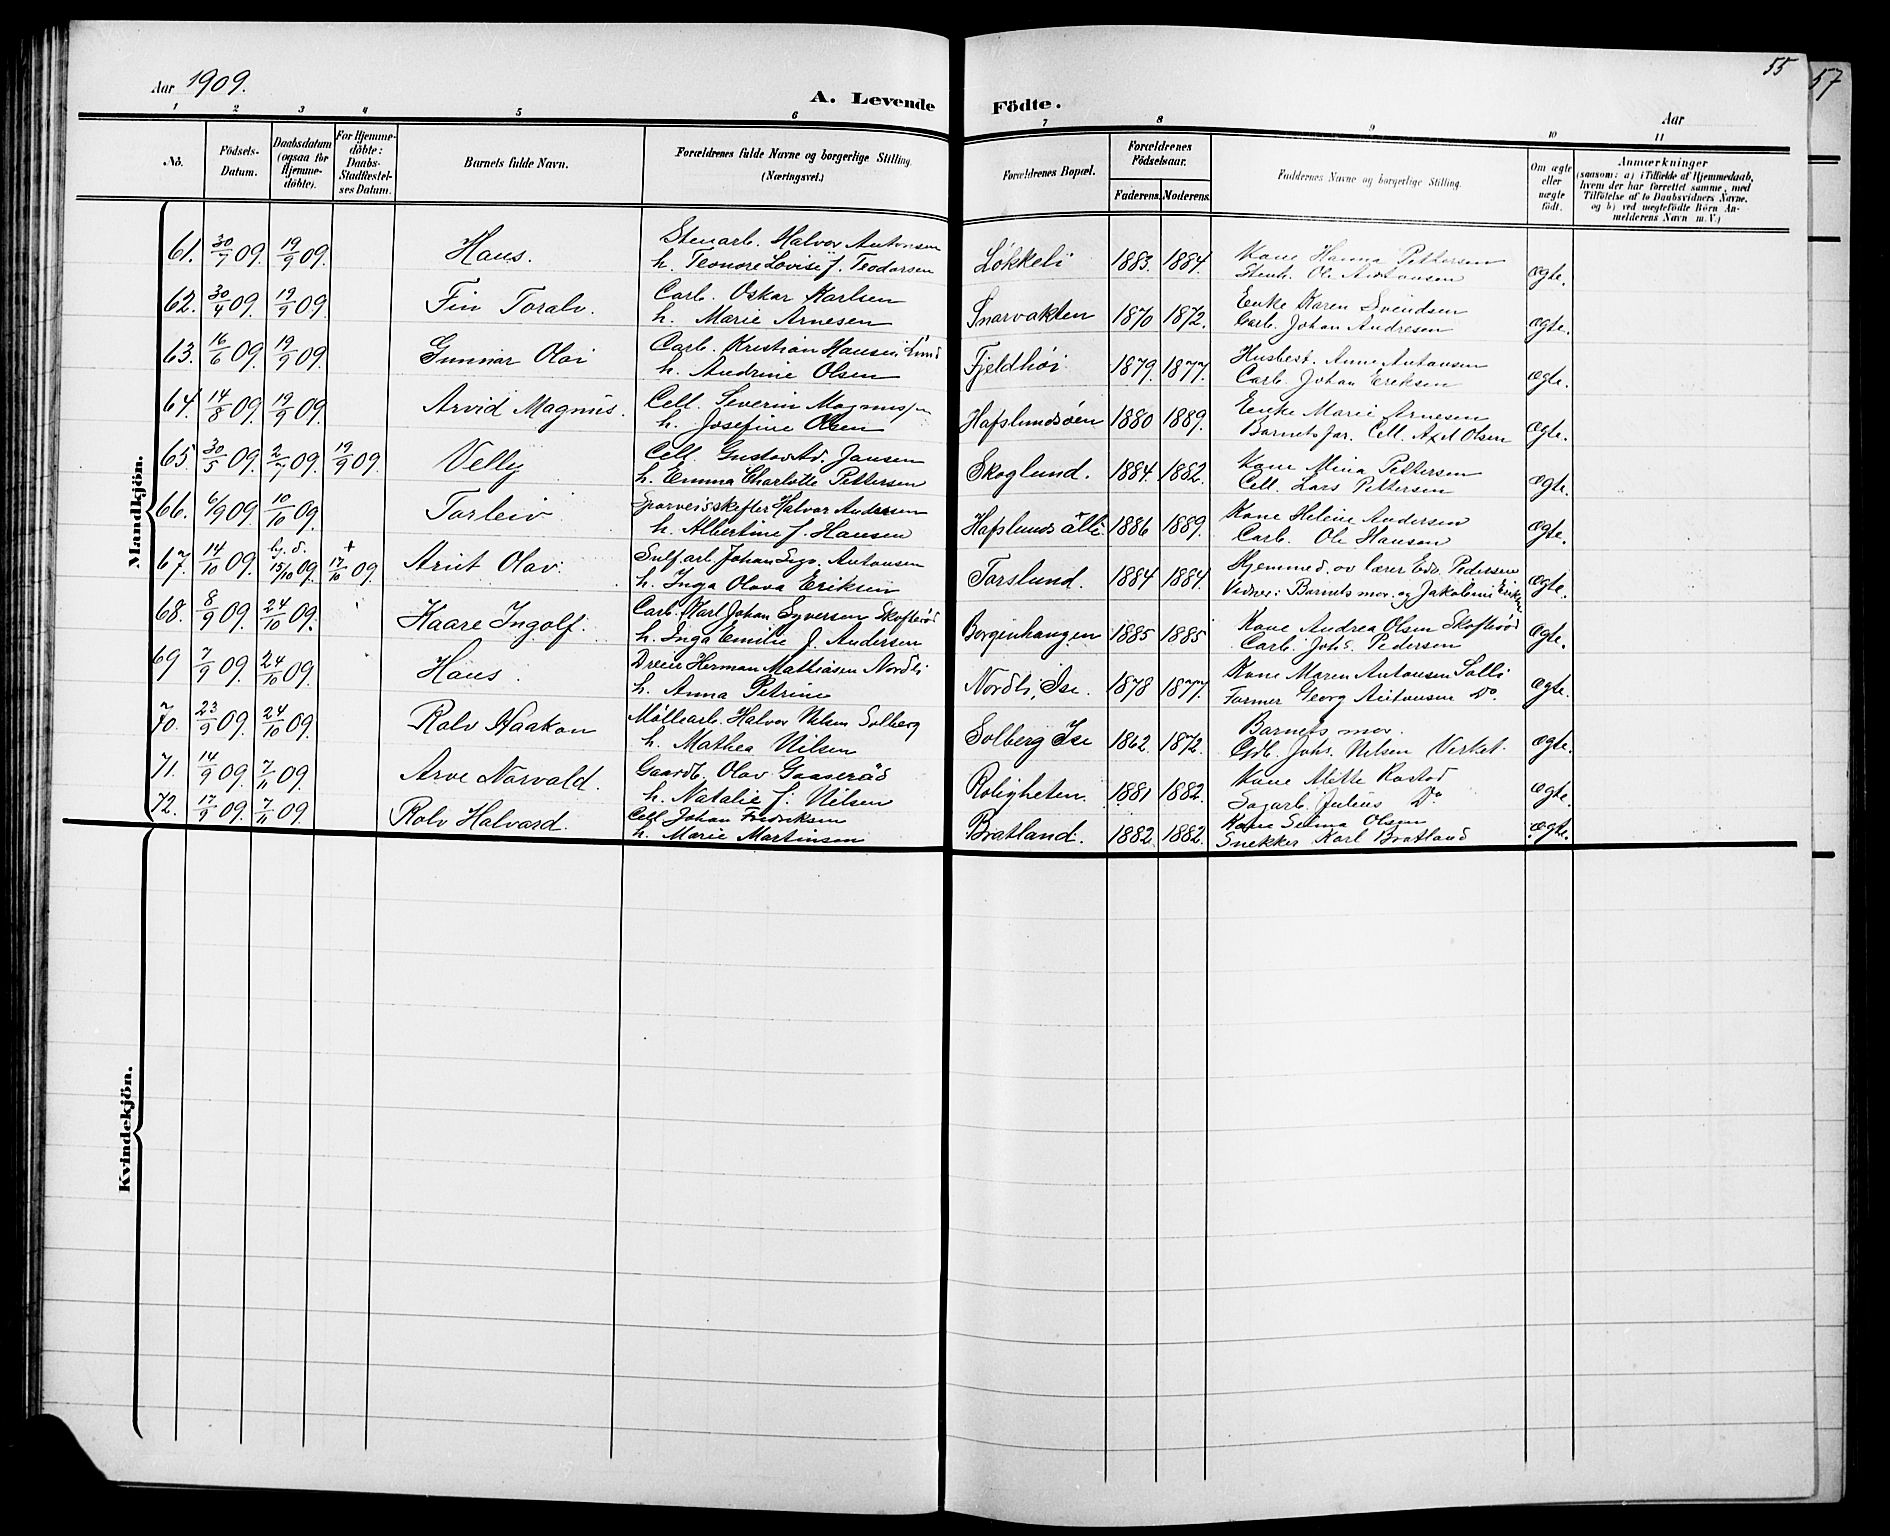 55
57
Aar 1909.
A. Levende Födte.
Aar
1 2 3 4 5 6 7 8 9 10 11
No.
Födsels-Datum.
Daabsdatum (ogsaa for Hjemme-döbte).
For Hjemme-döbte: Daabs-Stadfæstel-ses Datum.
Barnets fulde Navn.
Forældrenes fulde Navne og borgerlige Stilling. (Næringsvei.)
Forældrenes Bopæl.
Forældrenes Födselsaar.
Faderens. Moderens.
Faddernes Navne og borgerlige Stilling.
Om ægte eller uægte födt.
Anmærkninger
(saasom: a) i Tilfælde af Hjemmedaab, hvem der har forrettet samme, med Tilföielse af to Daabsvidners Navne, og b) ved uægtefödte Börn An-melderens Navn m. V.)
Mandkjön.
61. 30/7 09. 19/9 09. Hans. Stenarb. Halvor Antonsen Løkkeli 1883. 1884. Kone Hanna Pettersen ægte.
h. Teonore Lovise f. Teodorsen Stenh. Ole Antonsen
62. 30/4 09. 19/9 09. Fin Toralv. Carb. Oskar Karlsen Snarvakten 1870 1872. Enke Karen Svendsen ægte.
h. Marie Arnesen Carb. Johan Andresen
63. 16/6 09. 19/9 09. Gunnar Olai Carb. Kristian Hansen Lund Fjeldhøi 1879. 1877. Husbest. Anne Antonsen ægte.
h. Andrine Olsen Carb. Johan Eriksen
64. 14/8 09. 19/9 09. Arvid Magnus. Cell. Severin Magnussen Hafslundsøen 1880 1889. Enke Marie Arnesen ægte.
h. Josefine Olsen Barnets far. Cell. Axel Olsen
65. 30/5 09. 2/7 09. 19/9 09. Velly Cell. Gustav Ad. Jansen Skoglund. 1884. 1882. Kone Mina Pettersen ægte.
h. Emma Charlotte Pettersen Cell. Lars Pettersen
66. 6/9 09 10/10 09. Torleiv Sporveisskifter Halvor Andersen Hafslunds allé 1886 1889. Kone Helene Andersen ægte.
h. Albertine f. Hansen Carb. Ole Hansen
67. 14/10 09. hj. d. 15/10 09. + 17/10 09. Arnt Olav. Sulf.arb. Johan Sigv. Antonsen Torslund. 1884 1884. Hjemmed. av lærer Edv. Pedersen ægte.
h. Inga Olava Eriksen Vidner: Barnets mor. og Jakobine Eriksen
68. 8/9 09. 24/10 09. Kaare Ingolf. Carb. Karl Johan Syversen Skofterød Borgenhaugen 1885 1885 Kone Andrea Olsen Skofterød ægte.
h. Inga Emilie f. Andersen Carb. Johs. Pedersen
69 7/9 09. 24/10 09. Hans. Dreier Herman Mathiasen Nordli Nordli, Ise. 1878 1877. Kone Maren Antonsen Solli ægte.
h. Anna Petrine Former Georg Antonsen Do
70. 23/9 09. 24/10 09. Rolv Haakon Møllearb. Halvor Nilsen Solberg Solberg Ise 1862. 1872. Barnets mor. ægte.
h. Mathea Nilsen Gdb. Johs. Nilsen Verket.
71. 14/9 09. 7/11 09. Arve Norvald. Gaardb. Olav Gaaserød Roligheten. 1881 1882. Kone Mitte Rostad ægte.
h. Natalie f. Nilsen Sagarb. Julius Do
72. 17/9 09. 7/11 09. Rolv Halvard. Cell. Johan Fredriksen Bratland. 1882. 1882. Kone Selma Olsen ægte.
h. Marie Martinsen Snekker Karl Bratland
Kvindekjön.